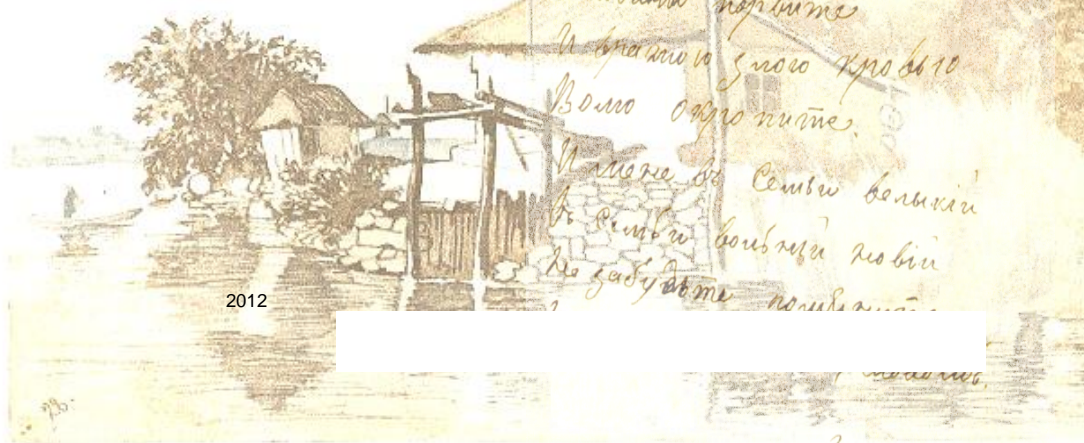 порвите
И вражою злою кровью
Волю окропите.
И мене въ семьи велыкій
Въ семьи вольній новій
Не забудьте помьянути
2012